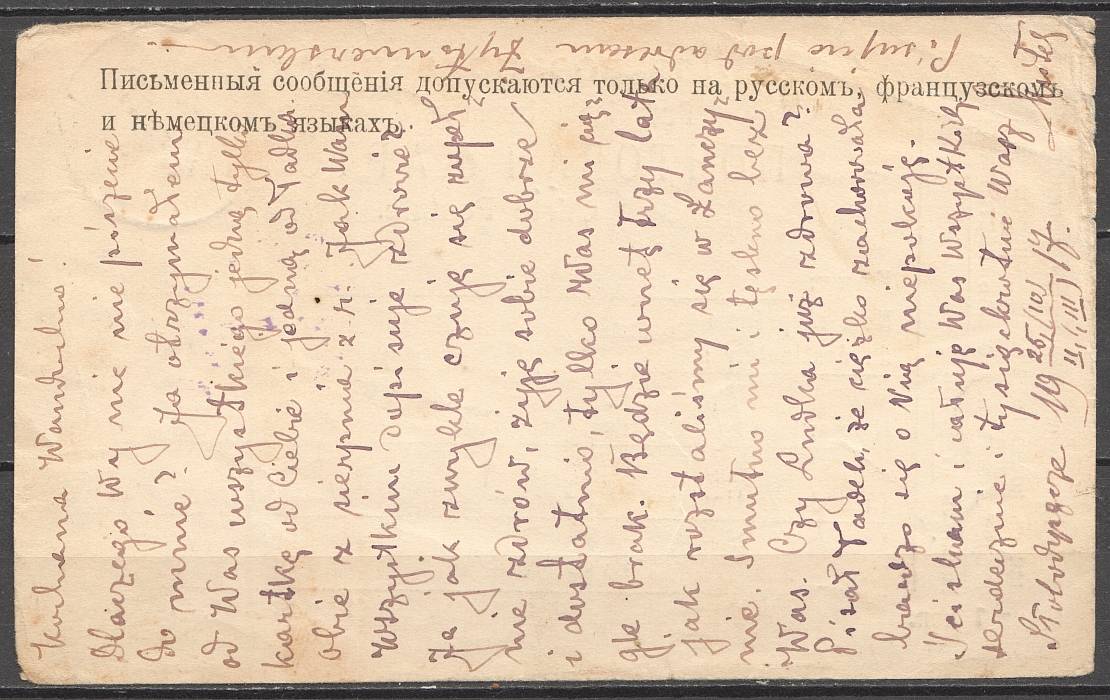 Письменныя сообщенія допускаются только на русскомъ, французскомъ
и нѣмецкомъ языкахъ.
Kochana Wandziu!
Dlaczego Wy nic nie piszecie
do mnie? Ja otrzymałem
od Was wszystkiego jedną tylko
kartkę od Ciebie i jedną od Tadka
obie z sierpnia z. r. Jak Wam
wszystkim zdrowie?
Ja jak zwykle czuję się zupeł-
nie zdrów, żyję sobie dobrze
i dostatnio, tylko Was mi cią-
gle brak. Będzie wnet trzy lata
jak rozstaliśmy się w Łanczy-
nie. Smutno mi i tęskno bez
Was. Czy Ludka już zdrowa?
Pisał Tadek, że ciężko zachorowała
bardzo się o Nią niepokoję.
Ściskam i całuję Was Wszystkich
serdecznie i tysiąckrotnie Wasz
19 26/III 17.
Pisujcie pod adresem